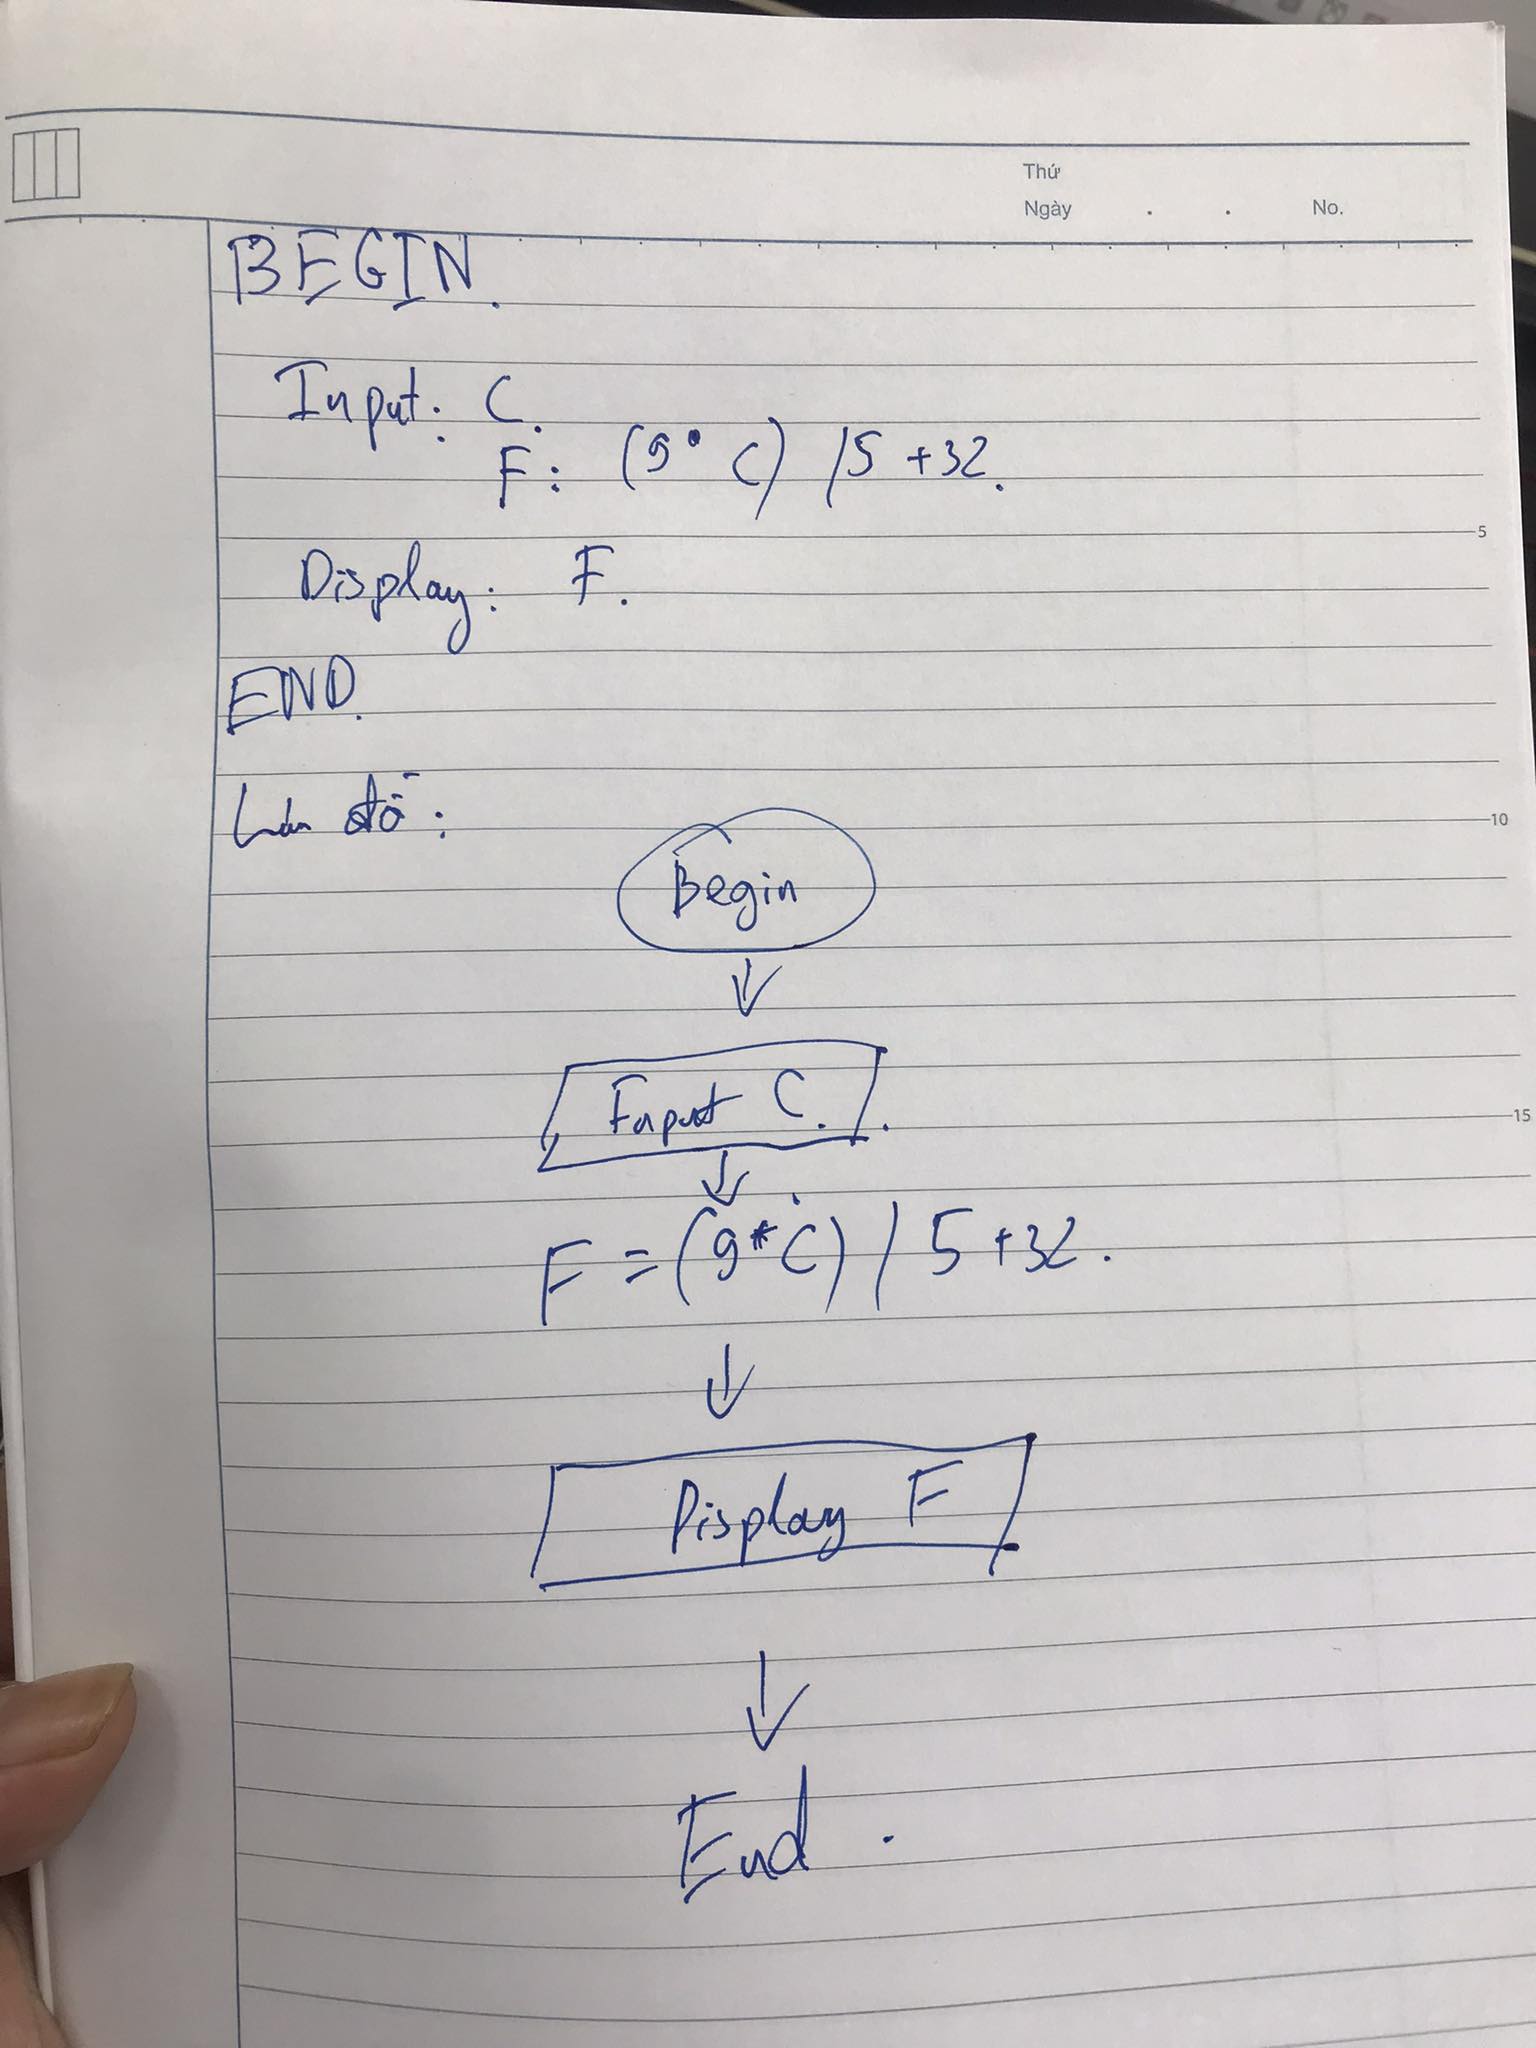 Thứ
Ngày . . No.
BEGIN.
Input: C.
F: (9 * C) / 5 + 32.
5
Display: F.
END.
đồ:
10
Begin
Input C.
15
F = (9 * C) / 5 + 32.
Display F
End.